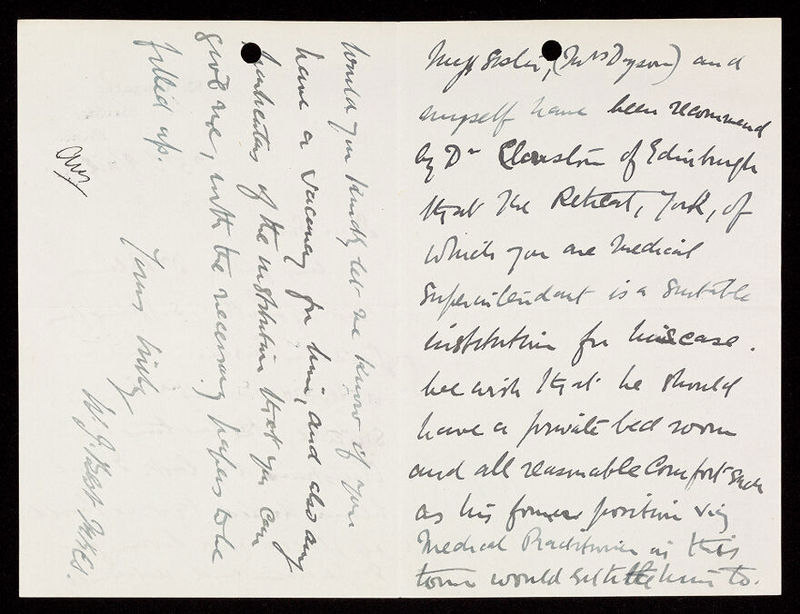 My sister, (Mrs Dyson) and
myself have been recommend
by Dr Clouston of Edinburgh
that the Retreat, York, of
which you are Medical
Superintendent is a suitable
institution for his case.
We wish that he should
have a private bed room
and all reasonable comfort such
as his former position viz
Medical Practitioner in this
town would entitle him to.
Would you kindly let me know if you
have a vacancy for him, and also any
particulars of the institution that you can
give me, with the necessary papers to be
filled up.
Yours truly
W. J.
ans